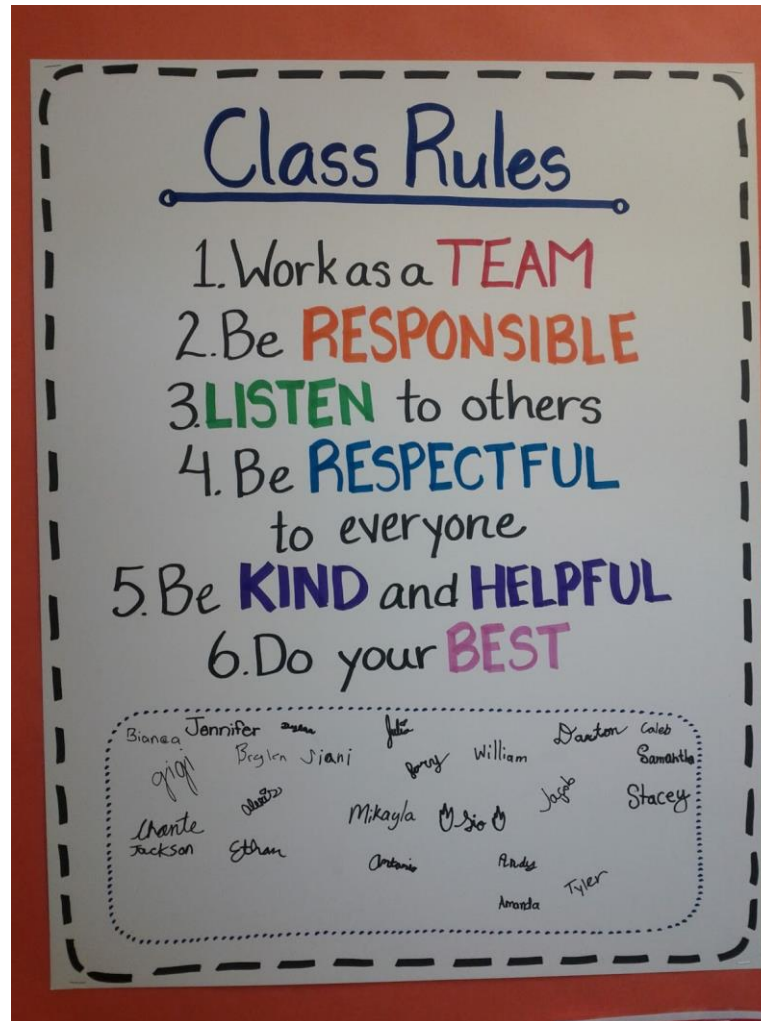 Class Rules
1. Work as a TEAM
2. Be RESPONSIBLE
3. LISTEN to others
4. Be RESPECTFUL
to everyone
5. Be KIND and HELPFUL
6. Do your BEST
Bianca Jennifer Julia Daxton Caleb
gigi Braylen Siani William Samantha
Alexis Jacob Stacey
Chante Mikayla Sio
Jackson Ethan Antonio Andy
Amanda Tyler